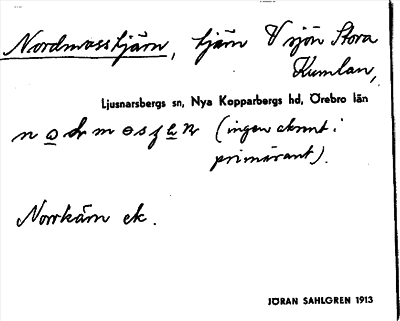 Nordmosstjärn, tjärn V sjön Stora
Kumlan,
Ljusnarsbergs sn, Nya Kopparbergs hd, Örebro län
(ingen akcent i
primärant).
Norrkärn ek.
JÖRAN SAHLGREN 1913